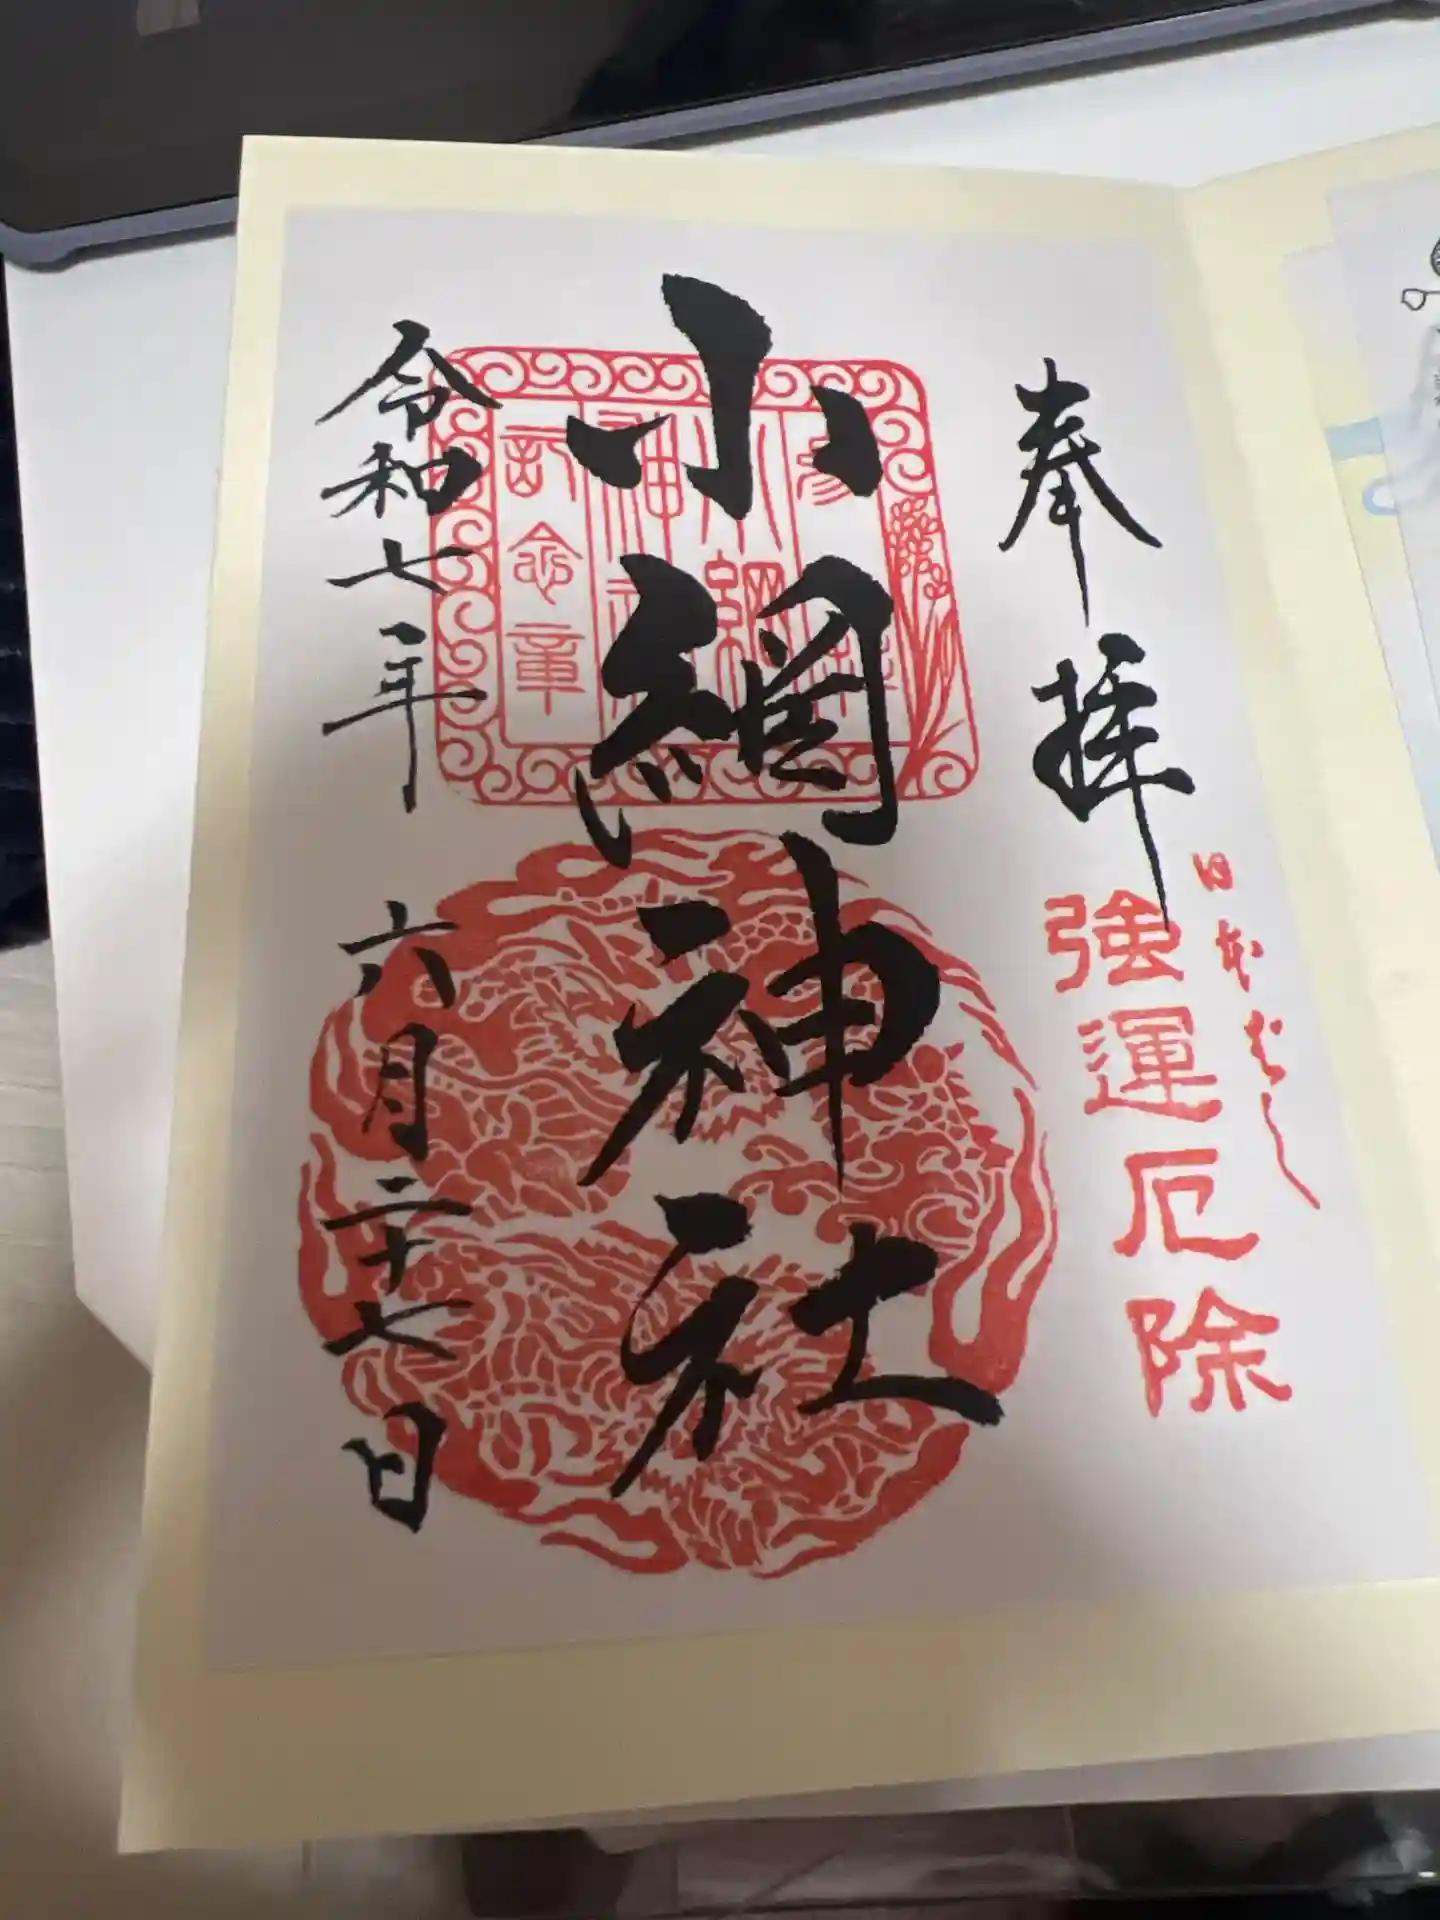 奉拝
日本ばし
強運厄除
小網神社
参拝
小網
神社
記念章
令和七年六月二十七日